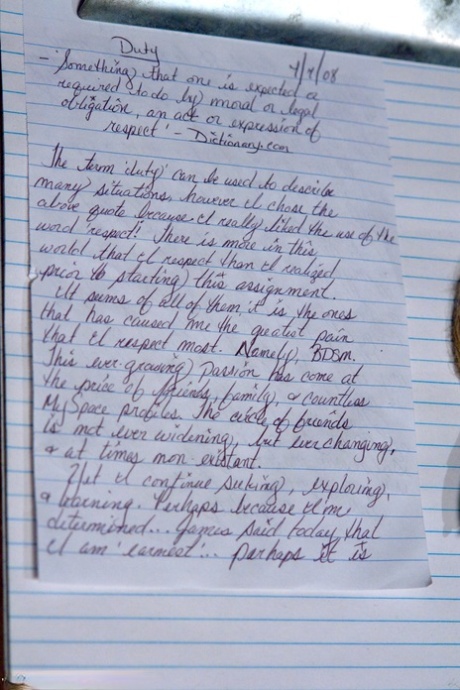 Duty 4/4/08
- 'Something that one is expected or
required to do by moral or legal
obligation, an act or expression of
respect' - Dictionary.com
The term 'duty' can be used to describe
many situations, however I chose the
above quote because I really liked the use of the
word 'respect.' There is more in this
world that I respect than I realized
prior to starting this assignment.
It sums of all of them, it is the ones
that has caused me the greatest pain
that I respect most. Namely, BDSM.
This ever-growing passion has come at
the price of friends, family, & countless
MySpace profiles. The circle of friends
is not ever widening, but ever changing,
& at times non-existant.
Yet I continue seeking, exploring,
& learning. Perhaps because I'm
determined... James said today that
I am 'earnest'... perhaps it is